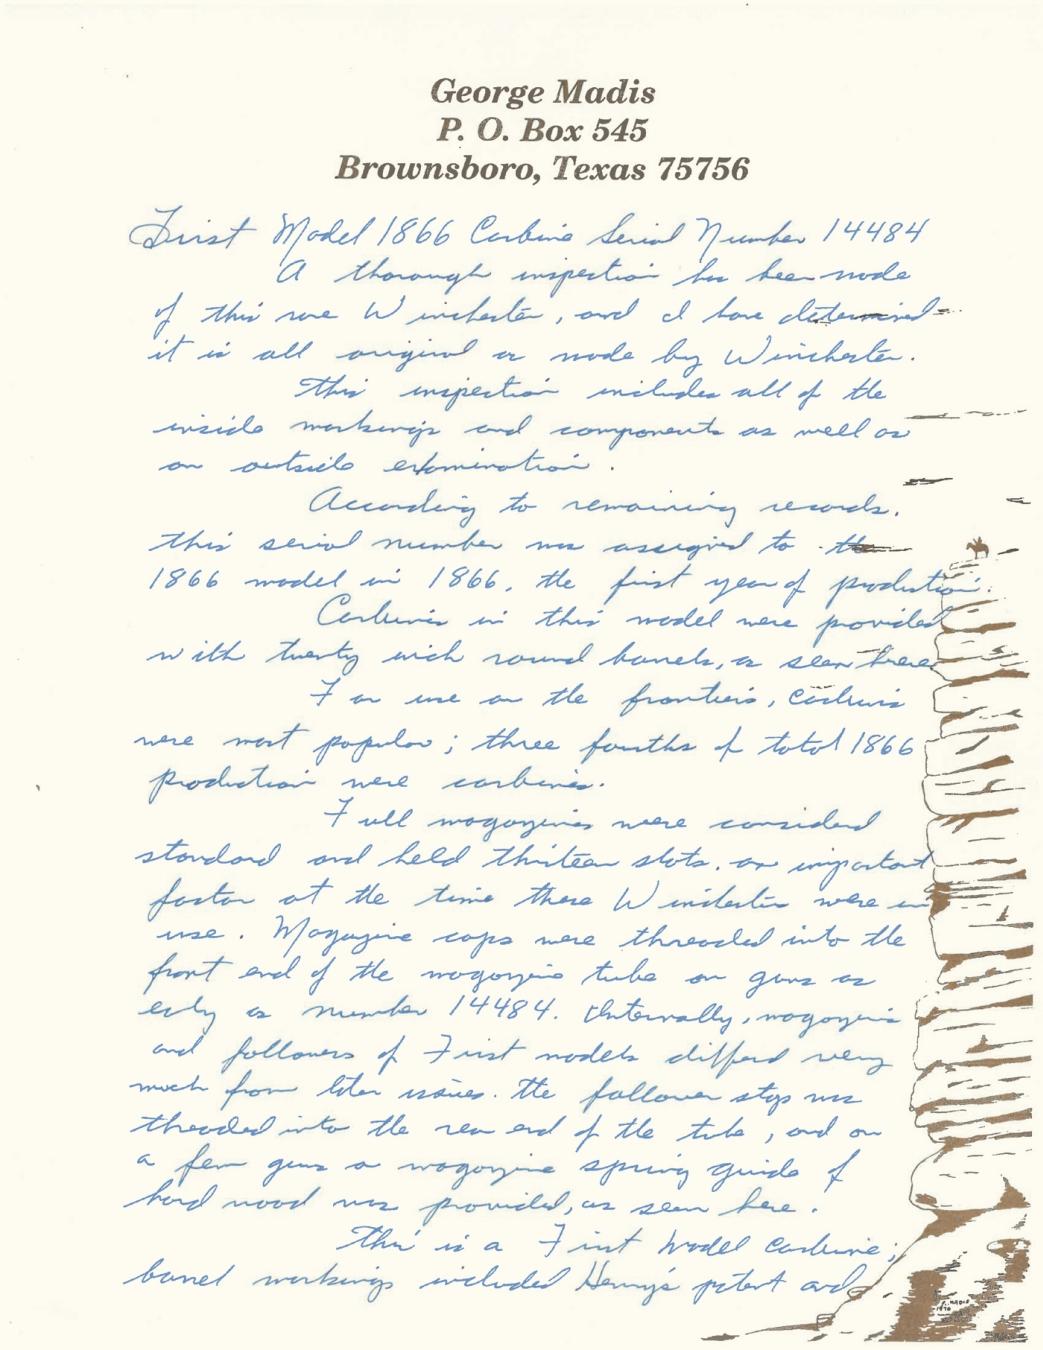 George Madis
P. O. Box 545
Brownsboro, Texas 75756
First Model 1866 Carbine Serial Number 14484
A thorough inspection has been made
of this rare Winchester, and I have determined
it is all original as made by Winchester.
This inspection includes all of the
inside markings and components as well as
an outside examination.
According to remaining records,
this serial number was assigned to the
1866 model in 1866, the first year of production.
Carbines in this model were provided
with twenty inch round barrels, as seen here.
For use on the frontiers, carbines
were most popular; three fourths of total 1866
production were carbines.
Full magazines were considered
standard and held thirteen shots, an important
factor at the time these Winchesters were in
use. Magazine caps were threaded into the
front end of the magazine tube on guns as
early as number 14484. Internally, magazines
and followers of First models differed very
much from later issues. The follower stop was
threaded into the rear end of the tube, and on
a few guns a magazine spring guide of
hard wood was provided, as seen here.
This is a First Model Carbine;
barrel markings included Henry's patent and